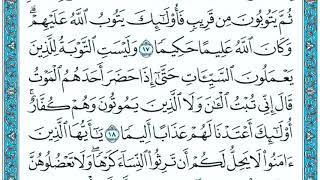 ثُمَّ يَتُوبُونَ مِن قَرِيبٍ فَأُو۟لَـٰٓئِكَ يَتُوبُ ٱللَّهُ عَلَيْهِمْ ۗ
وَكَانَ ٱللَّهُ عَلِيمًا حَكِيمًا ١٧ وَلَيْسَتِ ٱلتَّوْبَةُ لِلَّذِينَ
يَعْمَلُونَ ٱلسَّيِّـَٔاتِ حَتَّىٰٓ إِذَا حَضَرَ أَحَدَهُمُ ٱلْمَوْتُ
قَالَ إِنِّى تُبْتُ ٱلْـَٔـٰنَ وَلَا ٱلَّذِينَ يَمُوتُونَ وَهُمْ كُفَّارٌ ۚ
أُو۟لَـٰٓئِكَ أَعْتَدْنَا لَهُمْ عَذَابًا أَلِيمًا ١٨ يَـٰٓأَيُّهَا ٱلَّذِينَ
ءَامَنُوا۟ لَا يَحِلُّ لَكُمْ أَن تَرِثُوا۟ ٱلنِّسَآءَ كَرْهًا ۖ وَلَا تَعْضُلُوهُنَّ